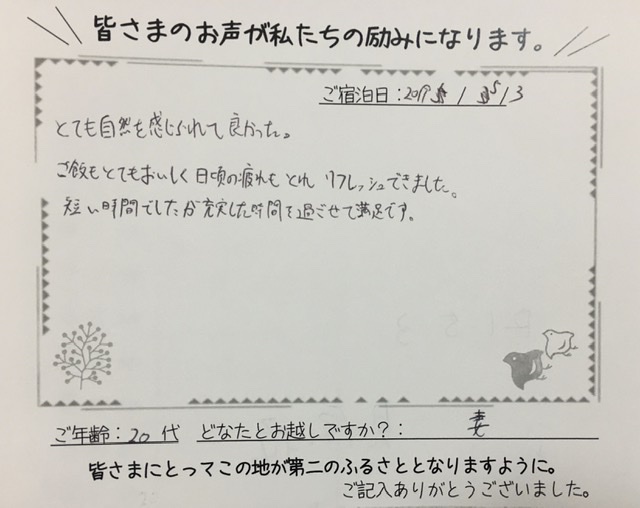 皆さまのお声が私たちの励みになります。
ご宿泊日:2017 / 5/3
とても自然を感じられて良かった。
ご飯もとてもおいしく日頃の疲れもとれ リフレッシュできました。
短い時間でしたが充実した時間を過ごせて満足です。
ご年齢:20代 どなたとお越しですか?: 妻
皆さまにとってこの地が第二のふるさととなりますように。
ご記入ありがとうございました。